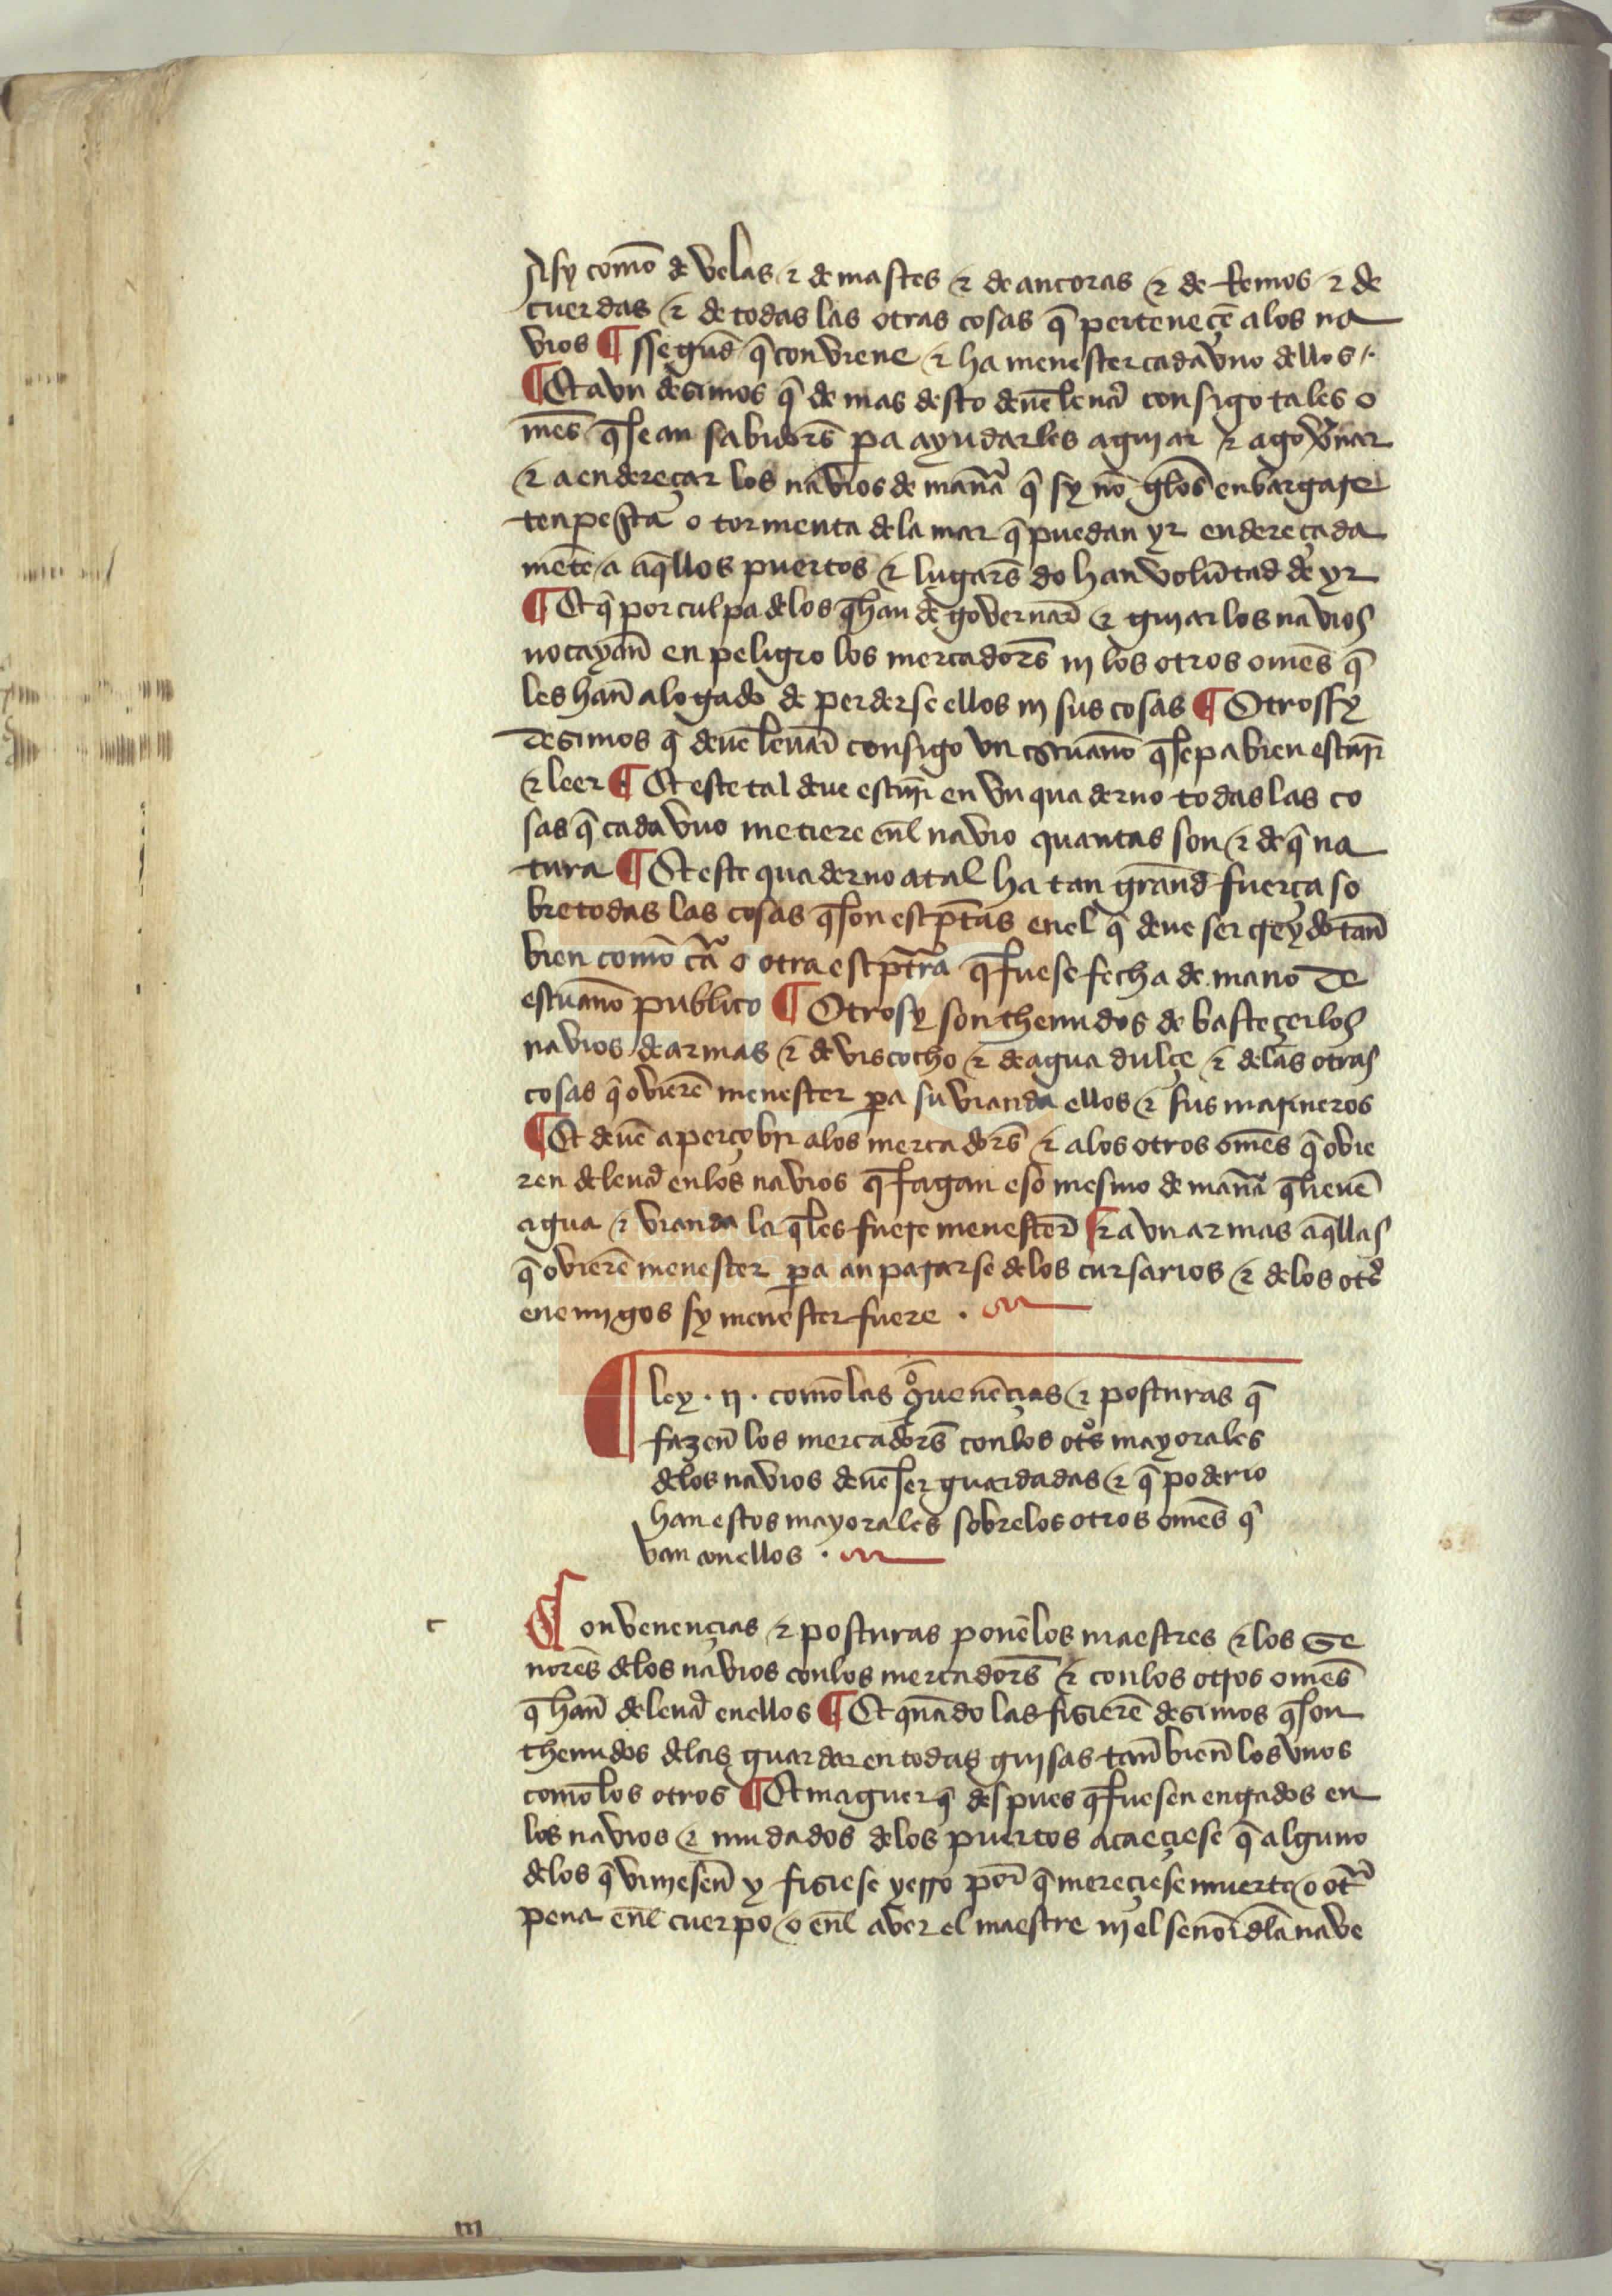 Asy como̅ de velas ⁊ de mastes ⁊ de ancoras ⁊ de Remos ⁊ de
cuerdas ⁊ de todas las otras cosas q̅ perteneçe̅ alos na
vios ¶ ssegu̅d q̅ conviene ⁊ ha menester cada vno dellos
¶ Et avn desimos q̅ de mas desto deue̅ leuar consigo tales o
me̅s q̅ sean sabidors̅ pa ayudarles a guiar ⁊ a gov̅nar
⁊ a endereçar los navios de man̅a q̅ sy no̅ gelos enbargase
tenpesta o tormenta dela mar q̅ puedan yr endereçada
me̅te a aq̅llos puertos ⁊ lugars̅ do han volu̅tad de yr
¶ Et q̅ por culpa delos q̅ han de governar̅ ⁊ guiar los navios
no cayan̅ en peligro los mercadors̅ nj los otros ome̅s q̅
les han̅ alogado de perderse ellos nj sus cosas ¶ Otrossy
desimos q̅ deue̅ leuar̅ consigo vn escriuano̅ q̅ sepa bien escriuir
⁊ leer ¶ Et este tal deue escriuir en vn quaderno todas las co
sas q̅ cada vno metiere enl̅ navio quantas son ⁊ de q̅ na
tura ¶ Et este quaderno atal ha tan gran̅d fuerça so
bre todas las cosas q̅ son escp̅tas enel q̅ deue ser creydo tan̅
bien como̅ ca̅ o otra escpt̅ra q̅ fuese fecha de mano de
escriuano̅ publico ¶ Otrosy son thenudos de basteçer los
navios de armas ⁊ de viscocho ⁊ de agua dulçe ⁊ delas otras
cosas q̅ oviere̅ menester pa su vianda ellos ⁊ sus marineros
¶ Et deue̅ aperçebir alos mercadors̅ ⁊ alos otros ome̅s q̅ ovie
ren de leuar en los navios q̅ fagan eso mesmo de man̅a q̅ lieue̅
agua ⁊ vianda la q̅ les fuere menester̅ ⁊ avn armas aq̅llas
q̅ oviere̅ menester pa anpararse delos cursarios ⁊ delos otrs̅
enemigos sy menester fuere .
¶ ley . ij . como̅ las 9uene̅çias ⁊ posturas q̅
fazen̅ los mercadors̅ con los otos̅ mayorales
delos navios deue̅ ser guardadas ⁊ q̅ poderio
han estos mayorales sobre los otros ome̅s q̅
van conellos .
c
Convenençias ⁊ posturas pone̅ los maestres ⁊ los se
nores̅ delos navios con los mercadors̅ ⁊ con los otros ome̅s
q̅ han̅ de leuar enellos ¶ Et qua̅do las fisiere̅ desimos q̅ son
thenudos delas guardar en todas guisas tan̅ bien̅ los vnos
como̅ los otros ¶ Et maguer q̅ despues q̅ fuesen entrados en
los navios ⁊ mudados delos puertos acaeçiese q̅ alguno
delos q̅ viniesen̅ y fisiese yerro por̅ q̅ mereçiese muerte o otra
pena enl̅ cuerpo o enl̅ aver el maestre nj el senor̅ dla̅ nave